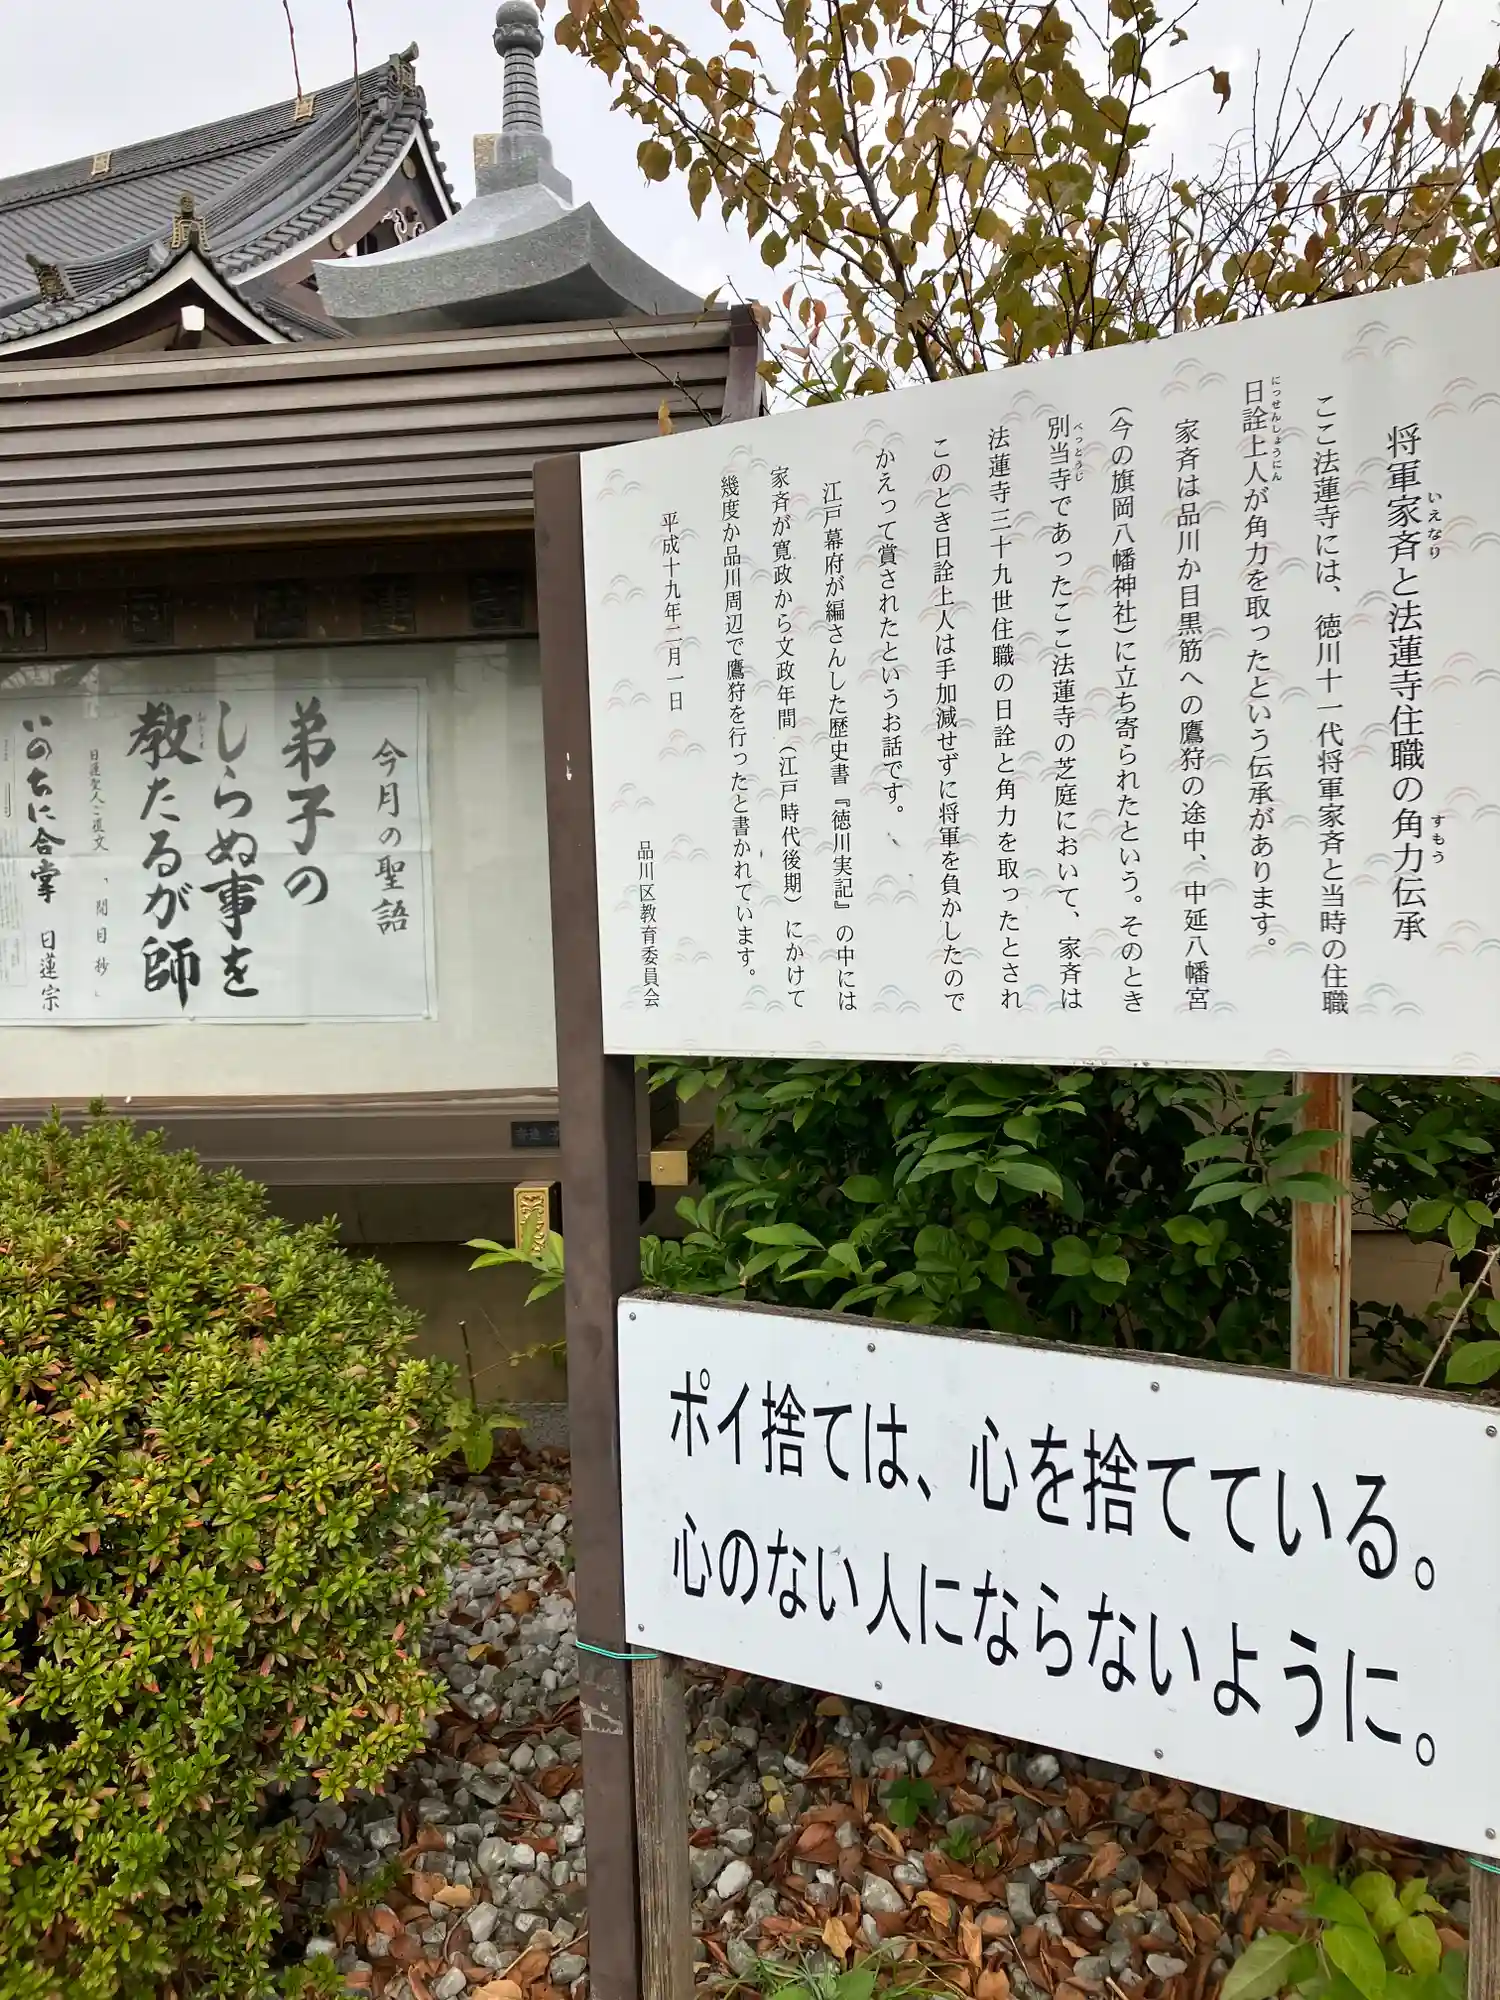 将軍家斉と法蓮寺住職の角力伝承
いえなり
すもう
ここ法蓮寺には、徳川十一代将軍家斉と当時の住職
日詮上人が角力を取ったという伝承があります。
にっせんしょうにん
家斉は品川か目黒筋への鷹狩の途中、中延八幡宮
(今の旗岡八幡神社)に立ち寄られたという。そのとき
別当寺であったここ法蓮寺の芝庭において、家斉は
べっとうじ
法蓮寺三十九世住職の日詮と角力を取ったとされ
このとき日詮上人は手加減せずに将軍を負かしたので
かえって賞されたというお話です。
江戸幕府が編さんした歴史書『徳川実記』の中には
家斉が寛政から文政年間(江戸時代後期)にかけて
幾度か品川周辺で鷹狩を行ったと書かれています。
平成十九年二月一日
品川区教育委員会
今月の聖語
弟子の
しらぬ事を
教たるが師
おしうる
日蓮聖人ご遺文 「開目抄」
いのちに合掌 日蓮宗
ポイ捨ては、心を捨てている。
心のない人にならないように。